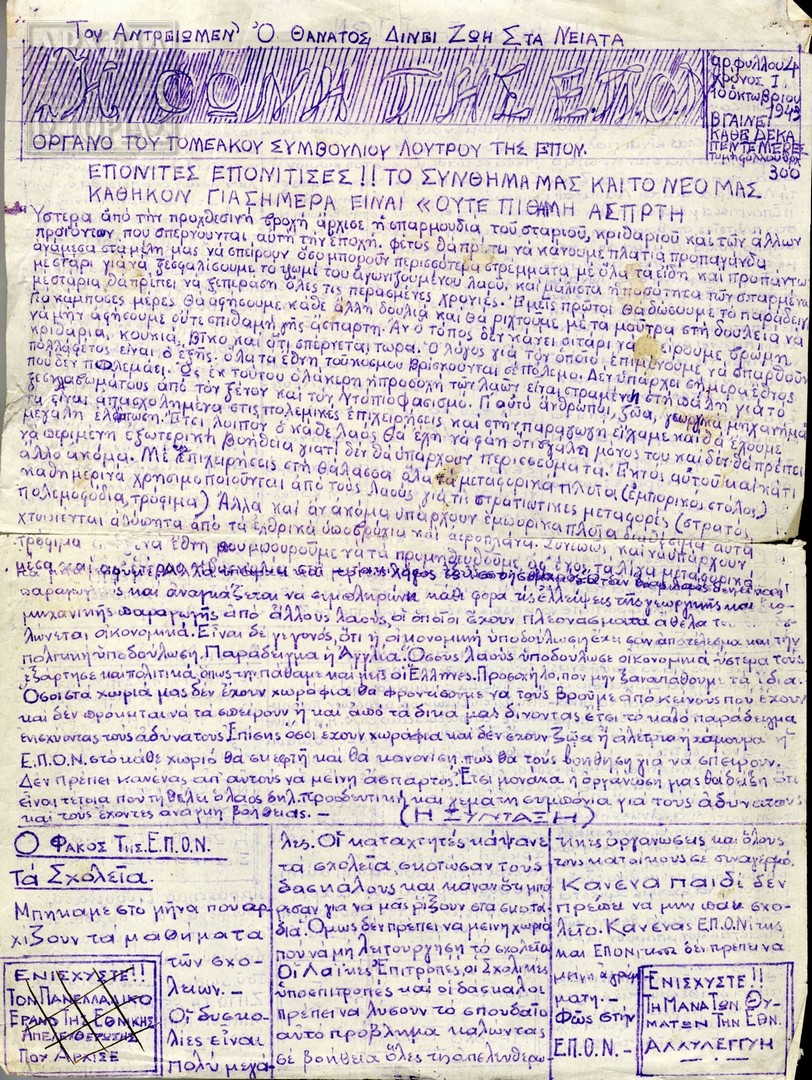 Των Αντρειωμεν' Ο Θανατος Δινει Ζωη Στα Νειατα
Η ΦΩΝΗ ΤΗΣ Ε.Π.Ο.Ν
αρ. φύλλου 4
χρόνος Ι.
10 οκτωβρίου
1943
ΒΓΑΙΝΕΙ
ΚΑΘΕ ΔΕΚΑ
ΠΕΝΤΕ ΜΕΡΕΣ
τιμη φύλλου δρχ
300
ΟΡΓΑΝΟ ΤΟΥ ΤΟΜΕΑΚΟΥ ΣΥΜΒΟΥΛΙΟΥ ΛΟΥΤΡΟΥ ΤΗΣ ΕΠΟΝ.
ΕΠΟΝΙΤΕΣ ΕΠΟΝΙΤΙΣΕΣ!! ΤΟ ΣΥΝΘΗΜΑ ΜΑΣ ΚΑΙ ΤΟ ΝΕΟ ΜΑΣ
ΚΑΘΗΚΟΝ ΓΙΑ ΣΗΜΕΡΑ ΕΙΝΑΙ «ΟΥΤΕ ΠΙΘΑΜΗ ΑΣΠΡΤΗ
Ύστερα από την προχθεσινή βροχή άρχισε ή σπαρμουδια του σταριού, κριθαριού και των άλλων
προϊόντων που σπέρνουνται αυτή την εποχή. φέτος θα πρέπει να κάνουμε πλατιά προπαγάνδα
ανάμεσα στα μέλη μας να σπείρουν όσο μπορούν περισσότερα στρεμματα με όλα τα είδη, και προπάντω
με στάρι για να ξεσφαλίσουμε το ψωμί του αγωνιζουμένου λαού, και μάλιστα η ποσότητα των σπαρμένω
με στάρια θα πρέπει να ξεπεραση όλες τις περασμένες χρονιές. Εμείς πρώτοι θα δώσουμε το παράδειγ
Για κάμποσες μέρες θα αφήσουμε κάθε άλλη δουλιά και θα ριχτούμε με τα μούτρα στη δουλεία να
να μην αφήσουμε ούτε σπιθαμή γης άσπαρτη. Αν ο τόπος δεν κάνει σιτάρι να σπείρουμε βρώμη
κριθάρια, κουκιά, βίκο και ότι σπέρνεται τώρα. Ο λόγος για τον οποίο επιμένουμε να σπαρθούν
πολλά φέτος είναι ο εξής. όλα τα έθνη του κόσμου βρίσκουνται σε πόλεμο. Δεν υπάρχει σήμερα έθνος
που δεν πολεμάει. Ως εκ τούτου ολάκερη η προσοχή των λαών είναι στραμένη στη πάλη για το
ξεσκλαβωμα τους από τον ξένον και τον Ντοπιοφασισμό. Γι αυτό άνθρωποι, ζώα, γεωργικά μηχανήμα
τα είναι απασχολημένα στις πολεμικές επιχειρήσεις και στην παραγωγή είχαμε και θα έχουμε
μεγάλη ελάττωση. Έτσι λοιπόν ο κάθε λαός θα έχη να φάη ότι βγάλει μόνος του και δεν θα πρέπει
να περιμένη εξωτερική βοήθεια γιατί δεν θα υπάρχουν περισσεύματα. Εκτός αυτού και κάτι
άλλο ακόμα. Με επιχειρήσεις στη θάλασσα όλα τα μεταφορικά πλοία (εμπορικός στόλος)
καθημερινά χρησιμοποιούνται από τους λαούς για τις στρατιωτικες μεταφορές (στρατός
πολεμοφόδια, τρόφιμα) Άλλα και αν ακόμα υπάρχουν εμπορικά πλοία διαθέσιμα αυτά
χτυπιένται αλύπητα από τα εχθρικά υποβρύχια και αεροπλάνα. Συνεπώς και να υπάρχουν
τρόφιμα να έθνη που μπορούμε να τα προμηθευθούμε, αφ ενός τα λίγα μεταφορικά
μέσα και αφ ετέρου
παραγωγής και αναγκάζεται να συμπληρώνη κάθε φορά τις ελλείψεις της γεωργικής και βιο
μηχανικής παραγωγής από άλλους λαούς, οι οποίοι έχουν πλεονασματα άθελα του
λώνεται οικονομικά. Είναι δε γεγονός, ότι η οικονομική υποδούλωση έχει σαν αποτέλεσμα και την
πολιτική υποδούλωση. Παράδειγμα η Αγγλία. Όσους λαούς υποδούλωσε οικονομικά ύστερα τους
εξάρτησε και πολιτικά, όπως την πάθαμε και μείς οι Έλληνες. Προσοχή λοιπόν μην ξαναπάθουμε τα ίδια.
Όσοι στα χωριά μας δεν έχουν χωράφια θα φροντίσουμε να τους βρούμε από κείνους που έχουν
και δεν πρόκειται να τα σπείρουν ή και από τα δικά μας δίνοντας έτσι το καλό παράδειγμα
ενισχύοντας τους αδύνατους Επίσης όσοι έχουν χωράφια και δεν έχουν ζώα ή αλέτρια ή χάμουρα η
Ε.Π.Ο.Ν. στο κάθε χωριό θα σκεφτή και θα κανονίση πως θα τους βοηθήση για να σπείρουν.
Δεν πρέπει κανένας απ' αυτούς να μείνη άσπαρτος. Έτσι μονάχα ή οργάνωσή μας θα δείξη ότι
είναι τέτοια που τη θέλει ο λαος δηλ. προοδευτική και γεμάτη συμπόνια για τους αδυνάτους
και τους έχοντες ανάγκη βοήθειας. –
(Η ΣΥΝΤΑΞΗ)
Ο ΦΑΚΟΣ ΤΗΣ Ε.Π.Ο.Ν.
Τά Σχολεία.
Μπήκαμε στο μήνα που αρ-
χίζουν τα μαθήματα
των σχο-
λείων. –
Οι δυσκο-
λίες είναι
πολύ μεγά-
ΕΝΙΣΧΥΣΤΕ!!
ΤΟΝ ΠΑΝΕΛΛΑΔΙΚΟ
ΕΡΑΝΟ ΤΗΣ ΕΘΝΙΚΗΣ
ΑΠΕΛΕΥΘΕΡΩΣΗΣ
ΠΟΥ ΑΡΧΙΣΕ
λες. Οι καταχτητές κάψανε
τα σχολεία, σκοτωσαν τους
δασκάλους και καναν ότι μπό
ρεσαν για να μας ρίξουν στα σκοτά
δια. Όμως δεν πρέπει να μείνη χωριό
που να μή λειτουργήση το σχολείο
Οι Λαϊκές Επιτροπές, οι Σχολικές
υποεπιτροπές και οι δάσκαλοι
πρέπει να λύσουν το σπουδαίο
αυτό πρόβλημα καλώντας
σε βοήθεια όλες τις απελευθερω
τικες οργανωσεις και όλους
τους κατοίκους σε συναγερμό.
Κανένα παιδί δεν
πρέπει να μην πάη σχο-
λείο. Κανένας ΕΠΟΝίτης
και ΕΠΟΝίτισσα δεν πρέπει να
μείνη αγράμ
ματη. –
Φως στην
Ε.Π.Ο.Ν. –
ΕΝΙΣΧΥΣΤΕ!!
ΤΗ ΜΑΝΑ ΤΩΝ ΘΥ-
ΜΑΤΩΝ ΤΗΝ ΕΘΝ.
ΑΛΛΥΛΕΓΓΥΗ